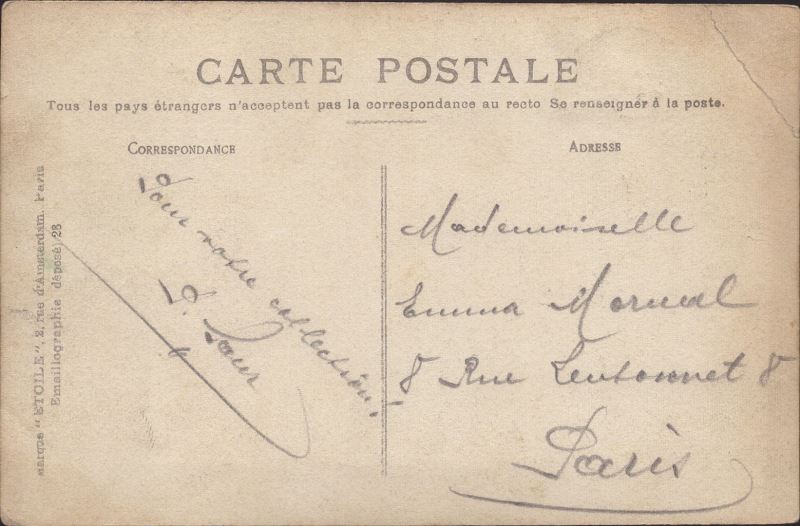 CARTE POSTALE
Tous les pays étrangers n'acceptent pas la correspondance au recto Se renseigner à la poste.
CORRESPONDANCE
Pour votre collection!
ADRESSE
Mademoiselle
Emma
8 Rue 8
Paris
Marque "ETOILE", 2, rue d'Amsterdam. Paris
Emaillographie déposé) 28